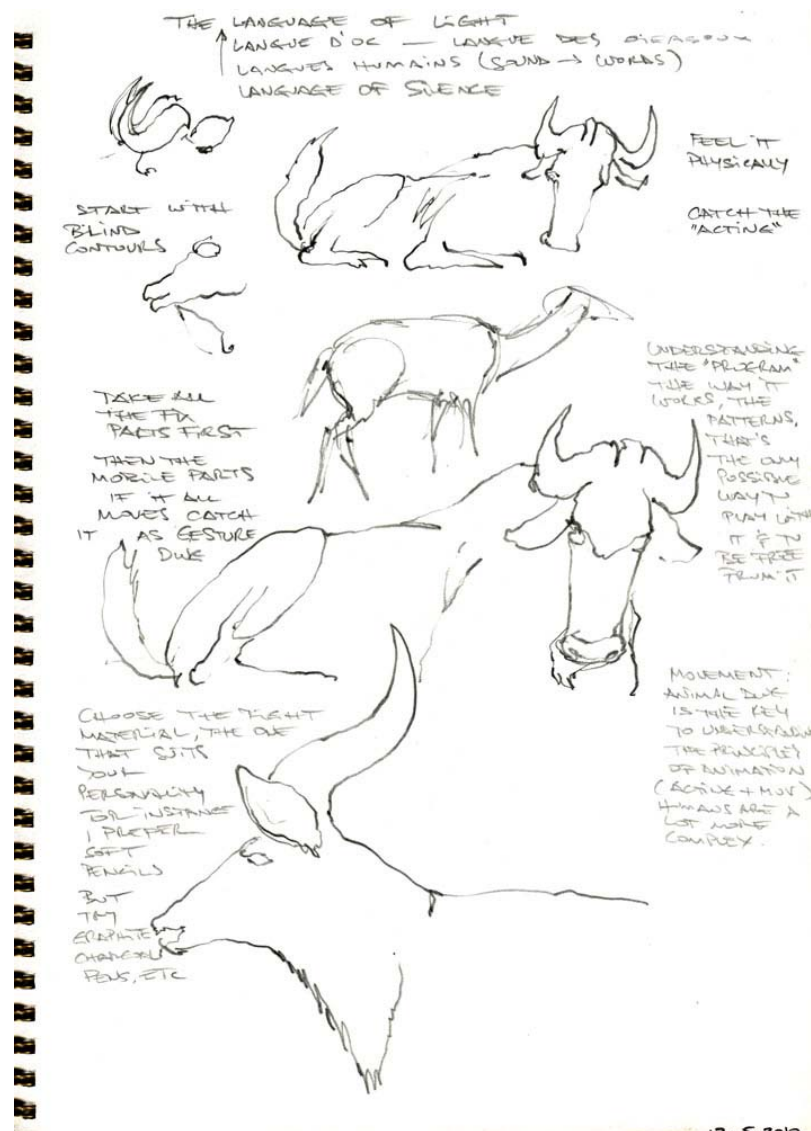 THE LANGUAGE OF LIGHT
LANGUE D'OC — LANGUE DES OISEAUX
LANGUES HUMAINS (SOUND → WORDS)
LANGUAGE OF SILENCE
FEEL IT
PHYSICALLY
CATCH THE
"ACTING"
START WITH
BLIND
CONTOURS
UNDERSTANDING
THE "PROGRAM"
THE WAY IT
WORKS, THE
PATTERNS,
THAT'S
THE ONLY
POSSIBLE
WAY TO
PLAY WITH
IT & TO
BE FREE
FROM IT
TAKE ALL
THE FIX
PARTS FIRST
THEN THE
MOBILE PARTS
IF IT ALL
MOVES CATCH
IT AS GESTURE
DWG
MOVEMENT:
ANIMAL DWG
IS THE KEY
TO UNDERSTANDING
THE PRINCIPLES
OF ANIMATION
(ACTING + MOV)
HUMANS ARE A
LOT MORE
COMPLEX.
CHOOSE THE RIGHT
MATERIAL, THE ONE
THAT SUITS
YOUR
PERSONALITY
FOR INSTANCE
I PREFER
SOFT
PENCILS
BUT
TRY
GRAPHITE
CHARCOAL
PENS, ETC